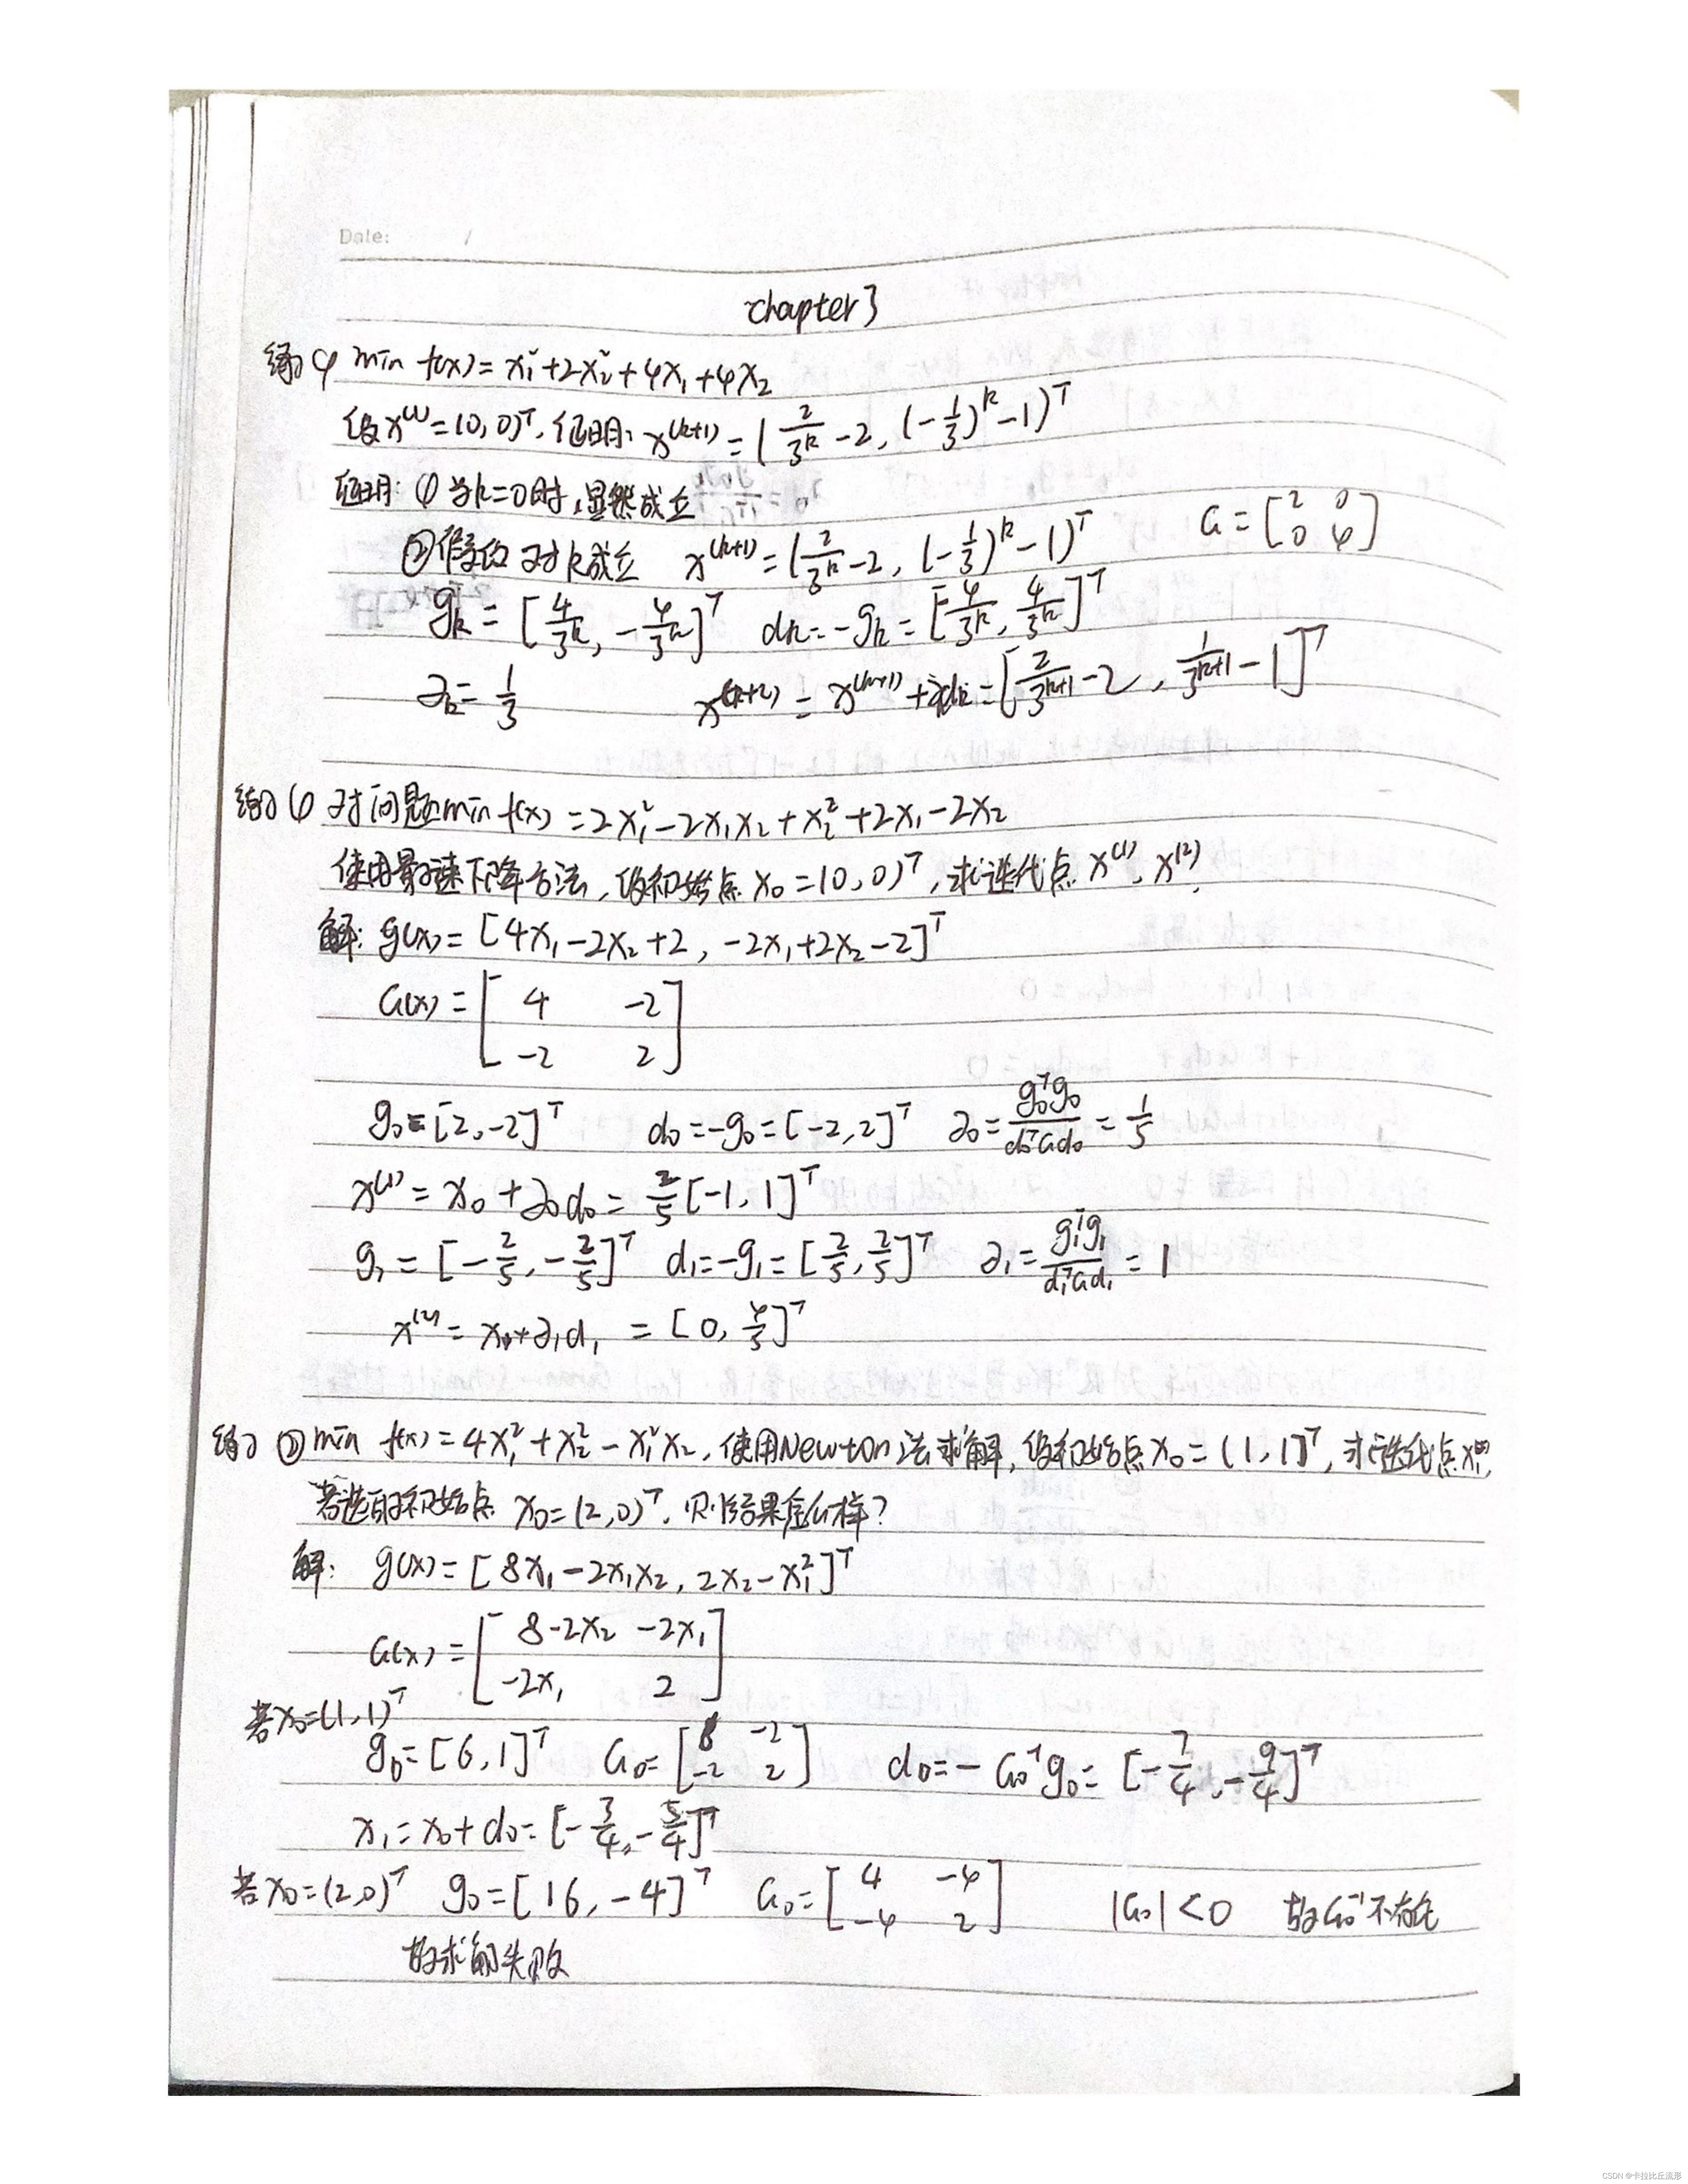 Date: /
chapter3
练习 φ min f(x) = x₁² + 2x₂² + 4x₁ + 4x₂
设 x⁽¹⁾ = (0, 0)ᵀ, 证明: x⁽ᵏ⁺¹⁾ = (2/3ᵏ - 2, (-1/3)ᵏ - 1)ᵀ
证明: ① 当k=0时, 显然成立
②假设 对k成立 x⁽ᵏ⁺¹⁾ = (2/3ᵏ - 2, (-1/3)ᵏ - 1)ᵀ G = [2 0; 0 4]
gₖ = [4/3ᵏ, -4/3ᵏ]ᵀ dₖ = -gₖ = [-4/3ᵏ, 4/3ᵏ]ᵀ
∂ₖ = 1/3 x⁽ᵏ⁺²⁾ = x⁽ᵏ⁺¹⁾ + ∂dₖ = [2/3ᵏ⁺¹ - 2, 1/3ᵏ⁺¹ - 1]ᵀ
练习 ① 对问题 min f(x) = 2x₁² - 2x₁x₂ + x₂² + 2x₁ - 2x₂
使用最速下降方法, 设初始点 x₀ = (0, 0)ᵀ, 求迭代点 x⁽¹⁾, x⁽²⁾.
解: g(x) = [4x₁ - 2x₂ + 2, -2x₁ + 2x₂ - 2]ᵀ
G(x) = [4 -2; -2 2]
g₀ = [2, -2]ᵀ d₀ = -g₀ = [-2, 2]ᵀ ∂₀ = g₀ᵀg₀/d₀ᵀGd₀ = 1/5
x⁽¹⁾ = x₀ + ∂₀d₀ = 2/5[-1, 1]ᵀ
g₁ = [-2/5, -2/5]ᵀ d₁ = -g₁ = [2/5, 2/5]ᵀ ∂₁ = g₁ᵀg₁/d₁ᵀGd₁ = 1
x⁽²⁾ = x₀ + ∂₁d₁ = [0, 4/5]ᵀ
练习 ② min f(x) = 4x₁² + x₂² - x₁²x₂, 使用Newton法求解, 设初始点 x₀ = (1, 1)ᵀ, 求迭代点
若选的初始点 x₀ = (2, 0)ᵀ, 则结果怎么样?
解: g(x) = [8x₁ - 2x₁x₂, 2x₂ - x₁²]ᵀ
G(x) = [8-2x₂ -2x₁; -2x₁ 2]
若x₀=(1,1)ᵀ
g₀ = [6, 1]ᵀ G₀ = [6 -2; -2 2] d₀ = -G₀⁻¹g₀ = [-7/4, -9/4]ᵀ
x₁ = x₀ + d₀ = [-3/4, -5/4]ᵀ
若x₀=(2,0)ᵀ g₀ = [16, -4]ᵀ G₀ = [4 -4; -4 2] |G₀| < 0 故G₀⁻¹不存在
故求解失败
CSDN @卡拉比丘流形